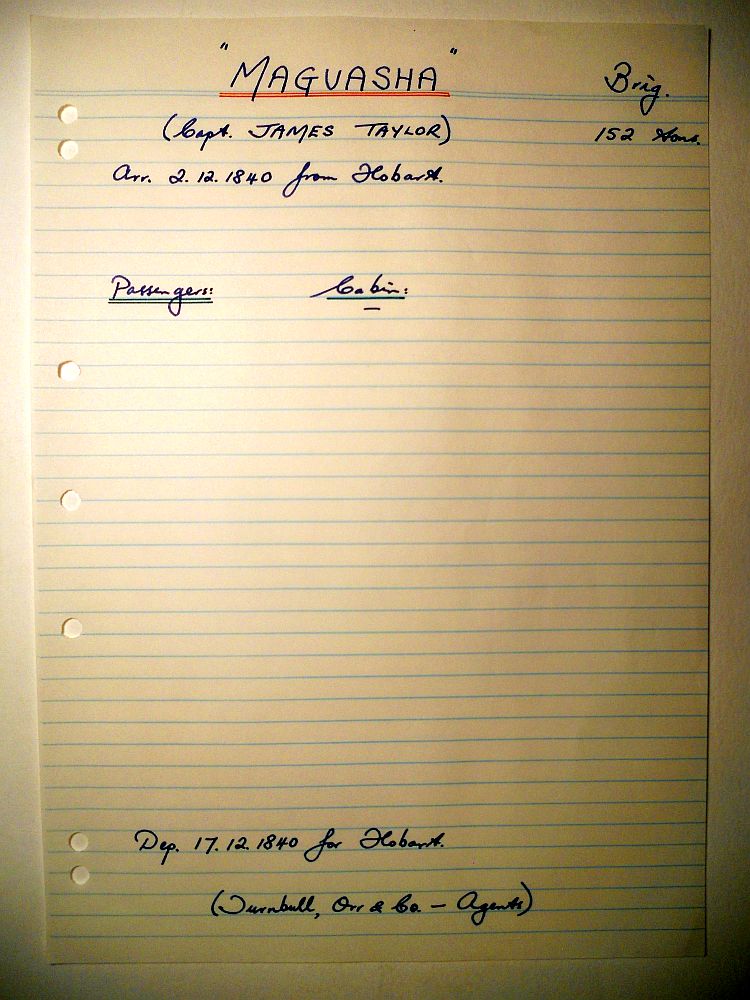 "MAGUASHA" Brig.
(Capt. JAMES TAYLOR) 152 tons.
Arr. 2.12.1840 from Hobart.
Passengers: Cabin:
—
Dep. 17.12.1840 for Hobart.
(Turnbull, Orr & Co. — Agents)